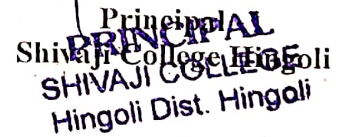 Principal
Shivaji College Hingoli
PRINCIPAL
SHIVAJI COLLEGE
Hingoli Dist. Hingoli